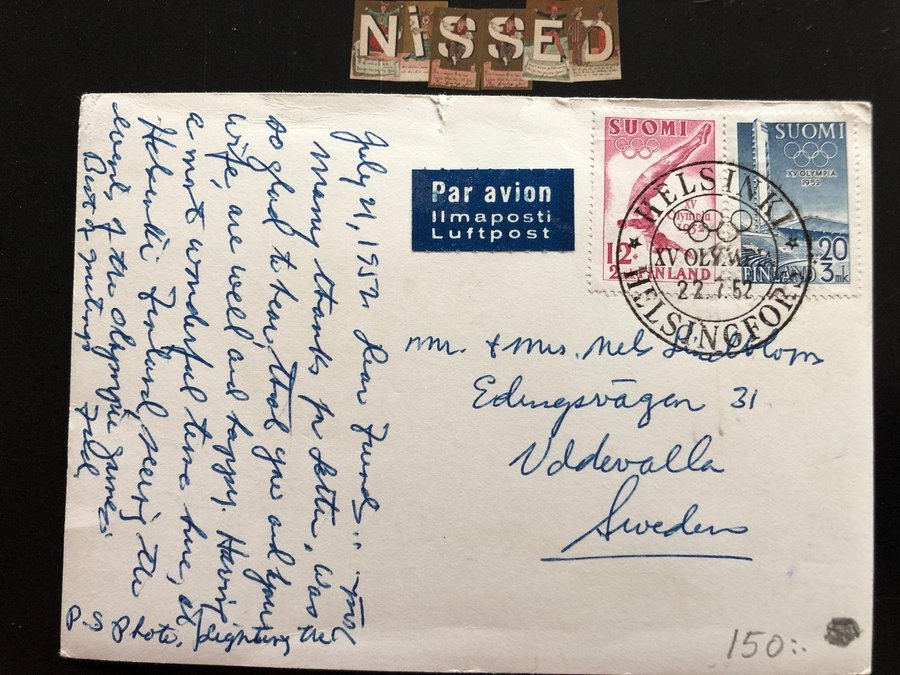 NiSSED
SUOMI
XV
Olympia
1952
12
+
2
FINLAND
SUOMI
XV OLYMPIA
1952
20
+
3 mk
FINLAND
HELSINKI
XV OLYMPIA
22.7.52
HELSINGFORS
Par avion
Ilmaposti
Luftpost
July 21, 1952 Dear Friends:
Many thanks for letter, was
so glad to hear, that you and your
wife, are well and happy. Having
a most wonderful time here, at
Helsinki Finland, seeing the
events of the Olympic Games
Best of greetings
P S Photo, lighting the
Mr. & Mrs. Nels
Edingsvägen 31
Uddevalla
Sweden
150:-